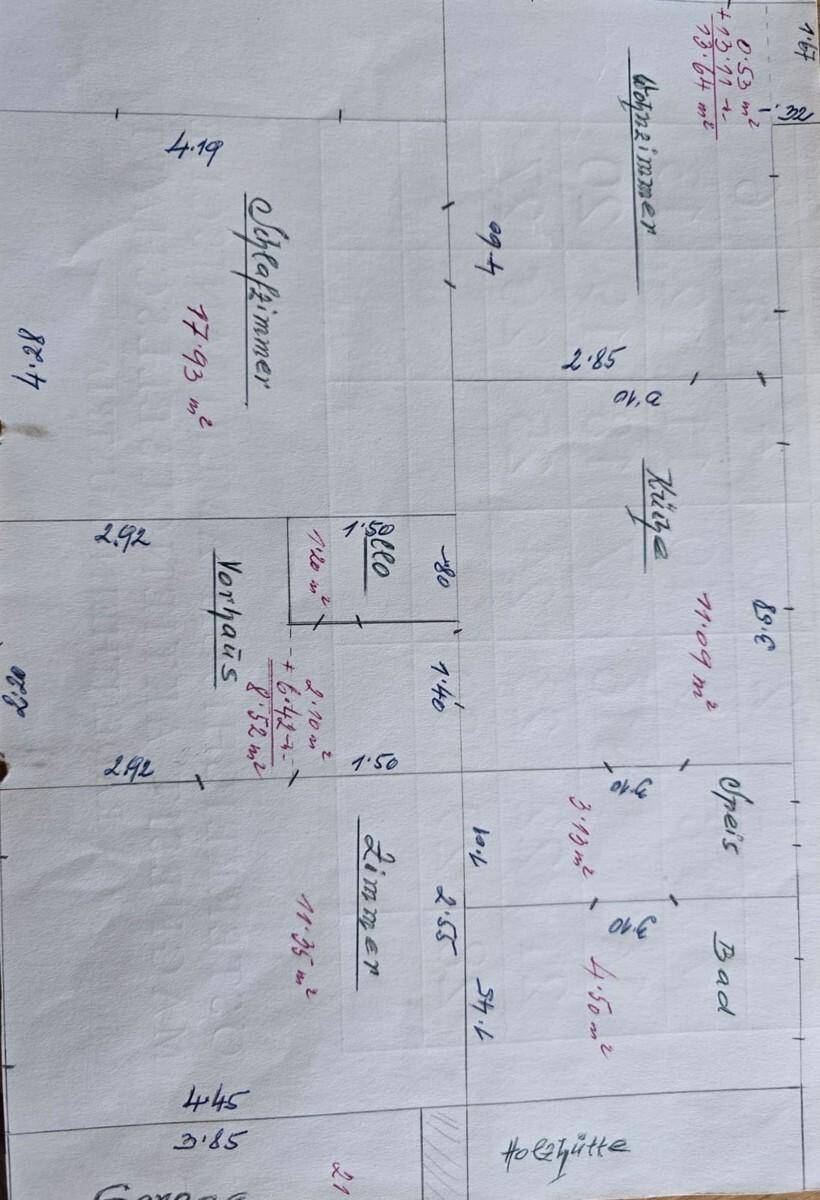 1.67
.32
0.53 m²
+ 13.11 -"-
13.64 m²
Wohnzimmer
4.19
Schlafzimmer
17.93 m²
4.28
4.60
2.85
0.10
Küche
11.09 m²
3.89
2.92
1.50
-80
1.20 m²
Vorhaus
2.20
2.10 m²
+ 6.42 -"-
8.52 m²
1.40
2.92
1.50
3.10
Speis
3.13 m²
1.01
3.10
Bad
4.50 m²
1.45
Zimmer
11.35 m²
2.55
4.45
3.85
21
Holzhütte